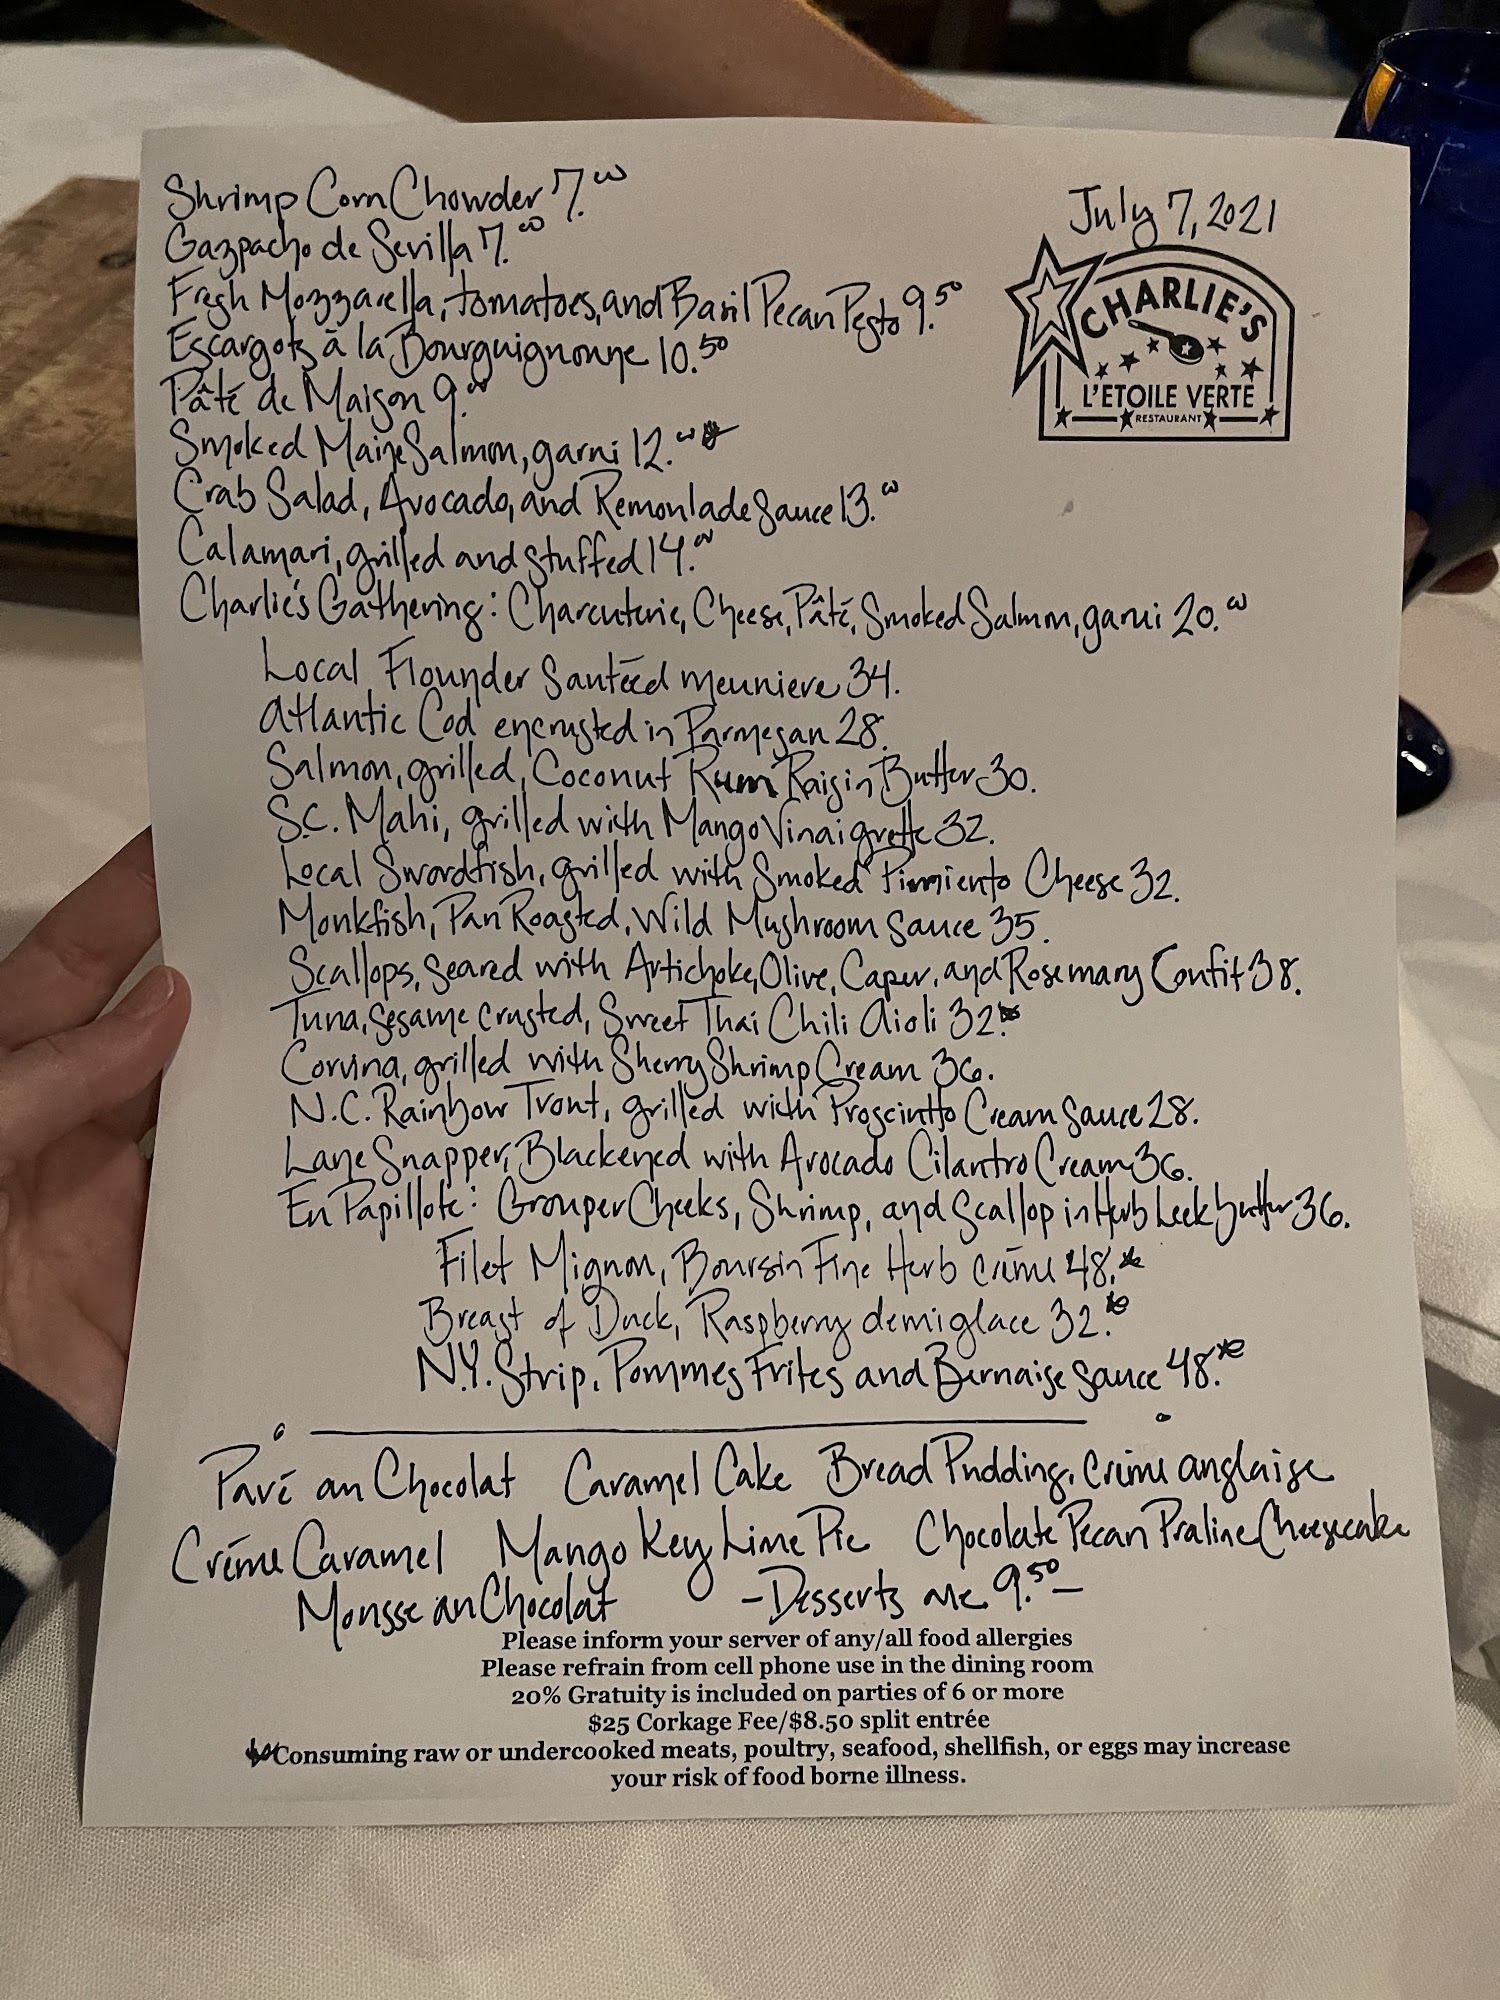 July 7, 2021
CHARLIE'S
L'ETOILE VERTE
RESTAURANT
Shrimp Corn Chowder 7.00
Gazpacho de Sevilla 7.00
Fresh Mozzarella, tomatoes, and Basil Pecan Pesto 9.50
Escargots à la Bourguignonne 10.50
Pâté de Maison 9.00
Smoked Maine Salmon, garni 12.00*
Crab Salad, Avocado, and Remonlade Sauce 13.00
Calamari, grilled and stuffed 14.00
Charlie's Gathering: Charcuterie, Cheese, Pâté, Smoked Salmon, garni 20.00
Local Flounder Sautéed meuniere 34.
Atlantic Cod encrusted in Parmesan 28.
Salmon, grilled, Coconut Rum Raisin Butter 30.
S.C. Mahi, grilled with Mango Vinaigrette 32.
Local Swordfish, grilled with Smoked Pimiento Cheese 32.
Monkfish, Pan Roasted, Wild Mushroom Sauce 35.
Scallops, Seared with Artichoke, Olive, Caper, and Rosemary Confit 38.
Tuna, Sesame Crusted, Sweet Thai Chili Aioli 32.*
Corvina, grilled with Sherry Shrimp Cream 36.
N.C. Rainbow Trout, grilled with Prosciutto Cream Sauce 28.
Lane Snapper, Blackened with Avocado Cilantro Cream 36.
En Papillote: Grouper Cheeks, Shrimp, and Scallop in Herb Leek butter 36.
Filet Mignon, Boursin Fine Herb Crème 48.*
Breast of Duck, Raspberry demi glace 32.*
N.Y. Strip, Pommes Frites and Bernaise Sauce 48.*
Pavé au Chocolat Caramel Cake Bread Pudding, Crème anglaise
Crème Caramel Mango Key Lime Pie Chocolate Pecan Praline Cheesecake
Mousse au Chocolat -Desserts are 9.50-
Please inform your server of any/all food allergies
Please refrain from cell phone use in the dining room
20% Gratuity is included on parties of 6 or more
$25 Corkage Fee/$8.50 split entrée
*Consuming raw or undercooked meats, poultry, seafood, shellfish, or eggs may increase
your risk of food borne illness.